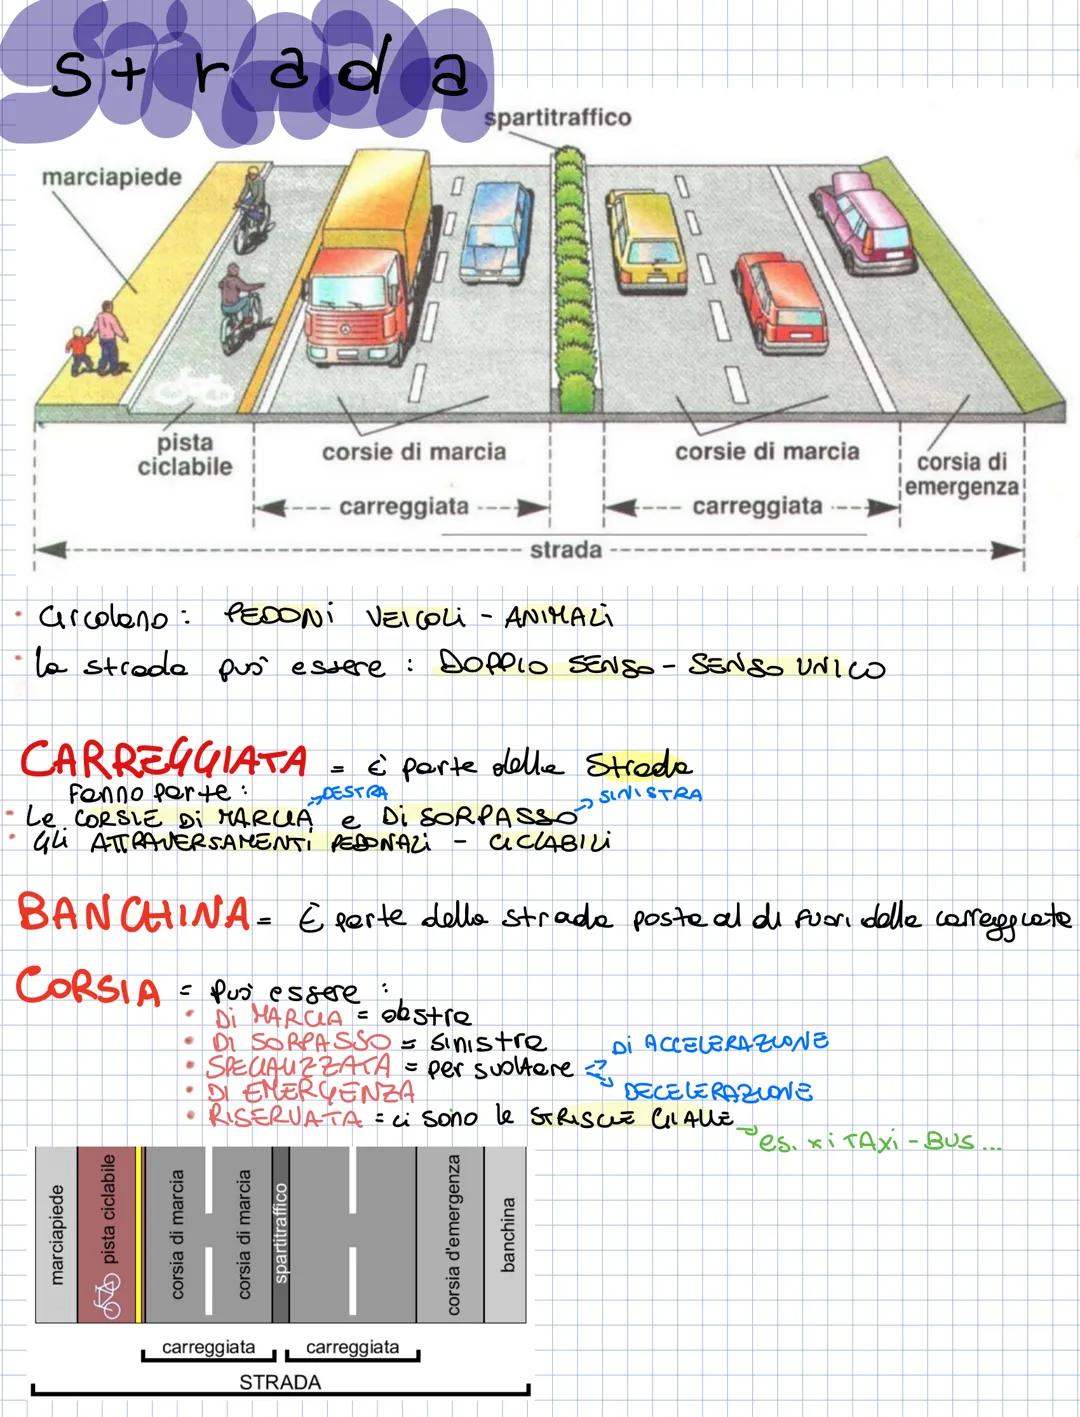 strada
spartitraffico
marciapiede
pista
ciclabile
corsie di marcia
corsie di marcia
corsia di
emergenza
carreggiata
carreggiata
strada
• Circolano : PEDONi VEICOLi - ANIMALi
• la strada può essere : DOPPIO SENSO - SENSO UNICO
CARREGGIATA = è parte della Strada
Fanno parte :
DESTRA
SINISTRA
• Le CORSIE Di MARCIA e Di SORPASSO
• Gli ATTRAVERSAMENTi PEDONALi - CICLABILi
BANCHINA = È parte della strada posta al di fuori della carreggiata
CORSIA = Può essere :
• Di MARCIA = destra
• Di SORPASSO = sinistra
• SPECIALIZZATA = per svoltare
Di ACCELERAZIONE
DECELERAZIONE
• DI EMERGENZA
• RISERVATA = ci sono le STRISCIE GIALLE
es. xi TAXi - BUS ...
marciapiede
pista ciclabile
corsia di marcia
corsia di marcia
spartitraffico
corsia d'emergenza
banchina
carreggiata
carreggiata
STRADA